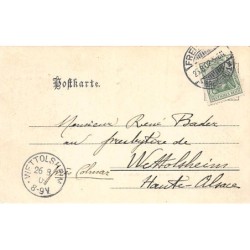 Postkarte.
Monsieur René Bader
au presbytère de
Wettolsheim
p. Colmar
Haute-Alsace
WETTOLSHEIM
26 9
8-9V